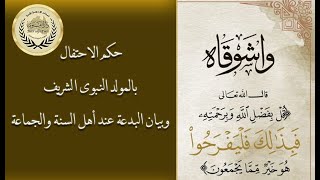 حكم الاحتفال
بالمولد النبوى الشريف
وبيان البدعة عند أهل السنة والجماعة
واشوقاه
قال الله تعالى
﴿قُلْ بِفَضْلِ اللَّهِ وَبِرَحْمَتِهِ
فَبِذَٰلِكَ فَلْيَفْرَحُوا
هُوَ خَيْرٌ مِّمَّا يَجْمَعُونَ﴾